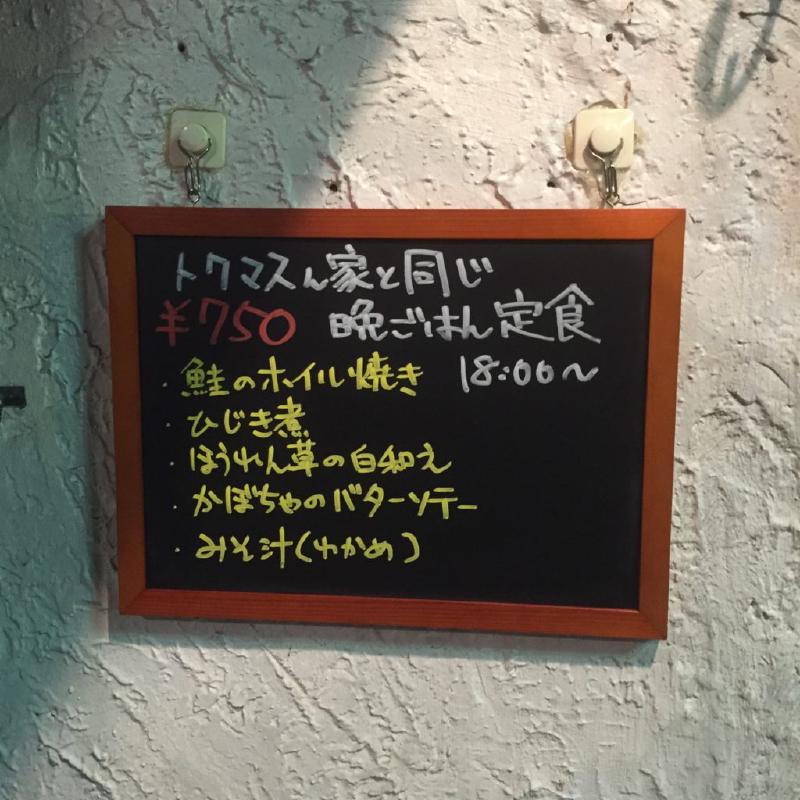 トクマスん家と同じ
¥750 晩ごはん定食
・鮭のホイル焼き 18:00〜
・ひじき煮
・ほうれん草の白和え
・かぼちゃのバターソテー
・みそ汁(わかめ)